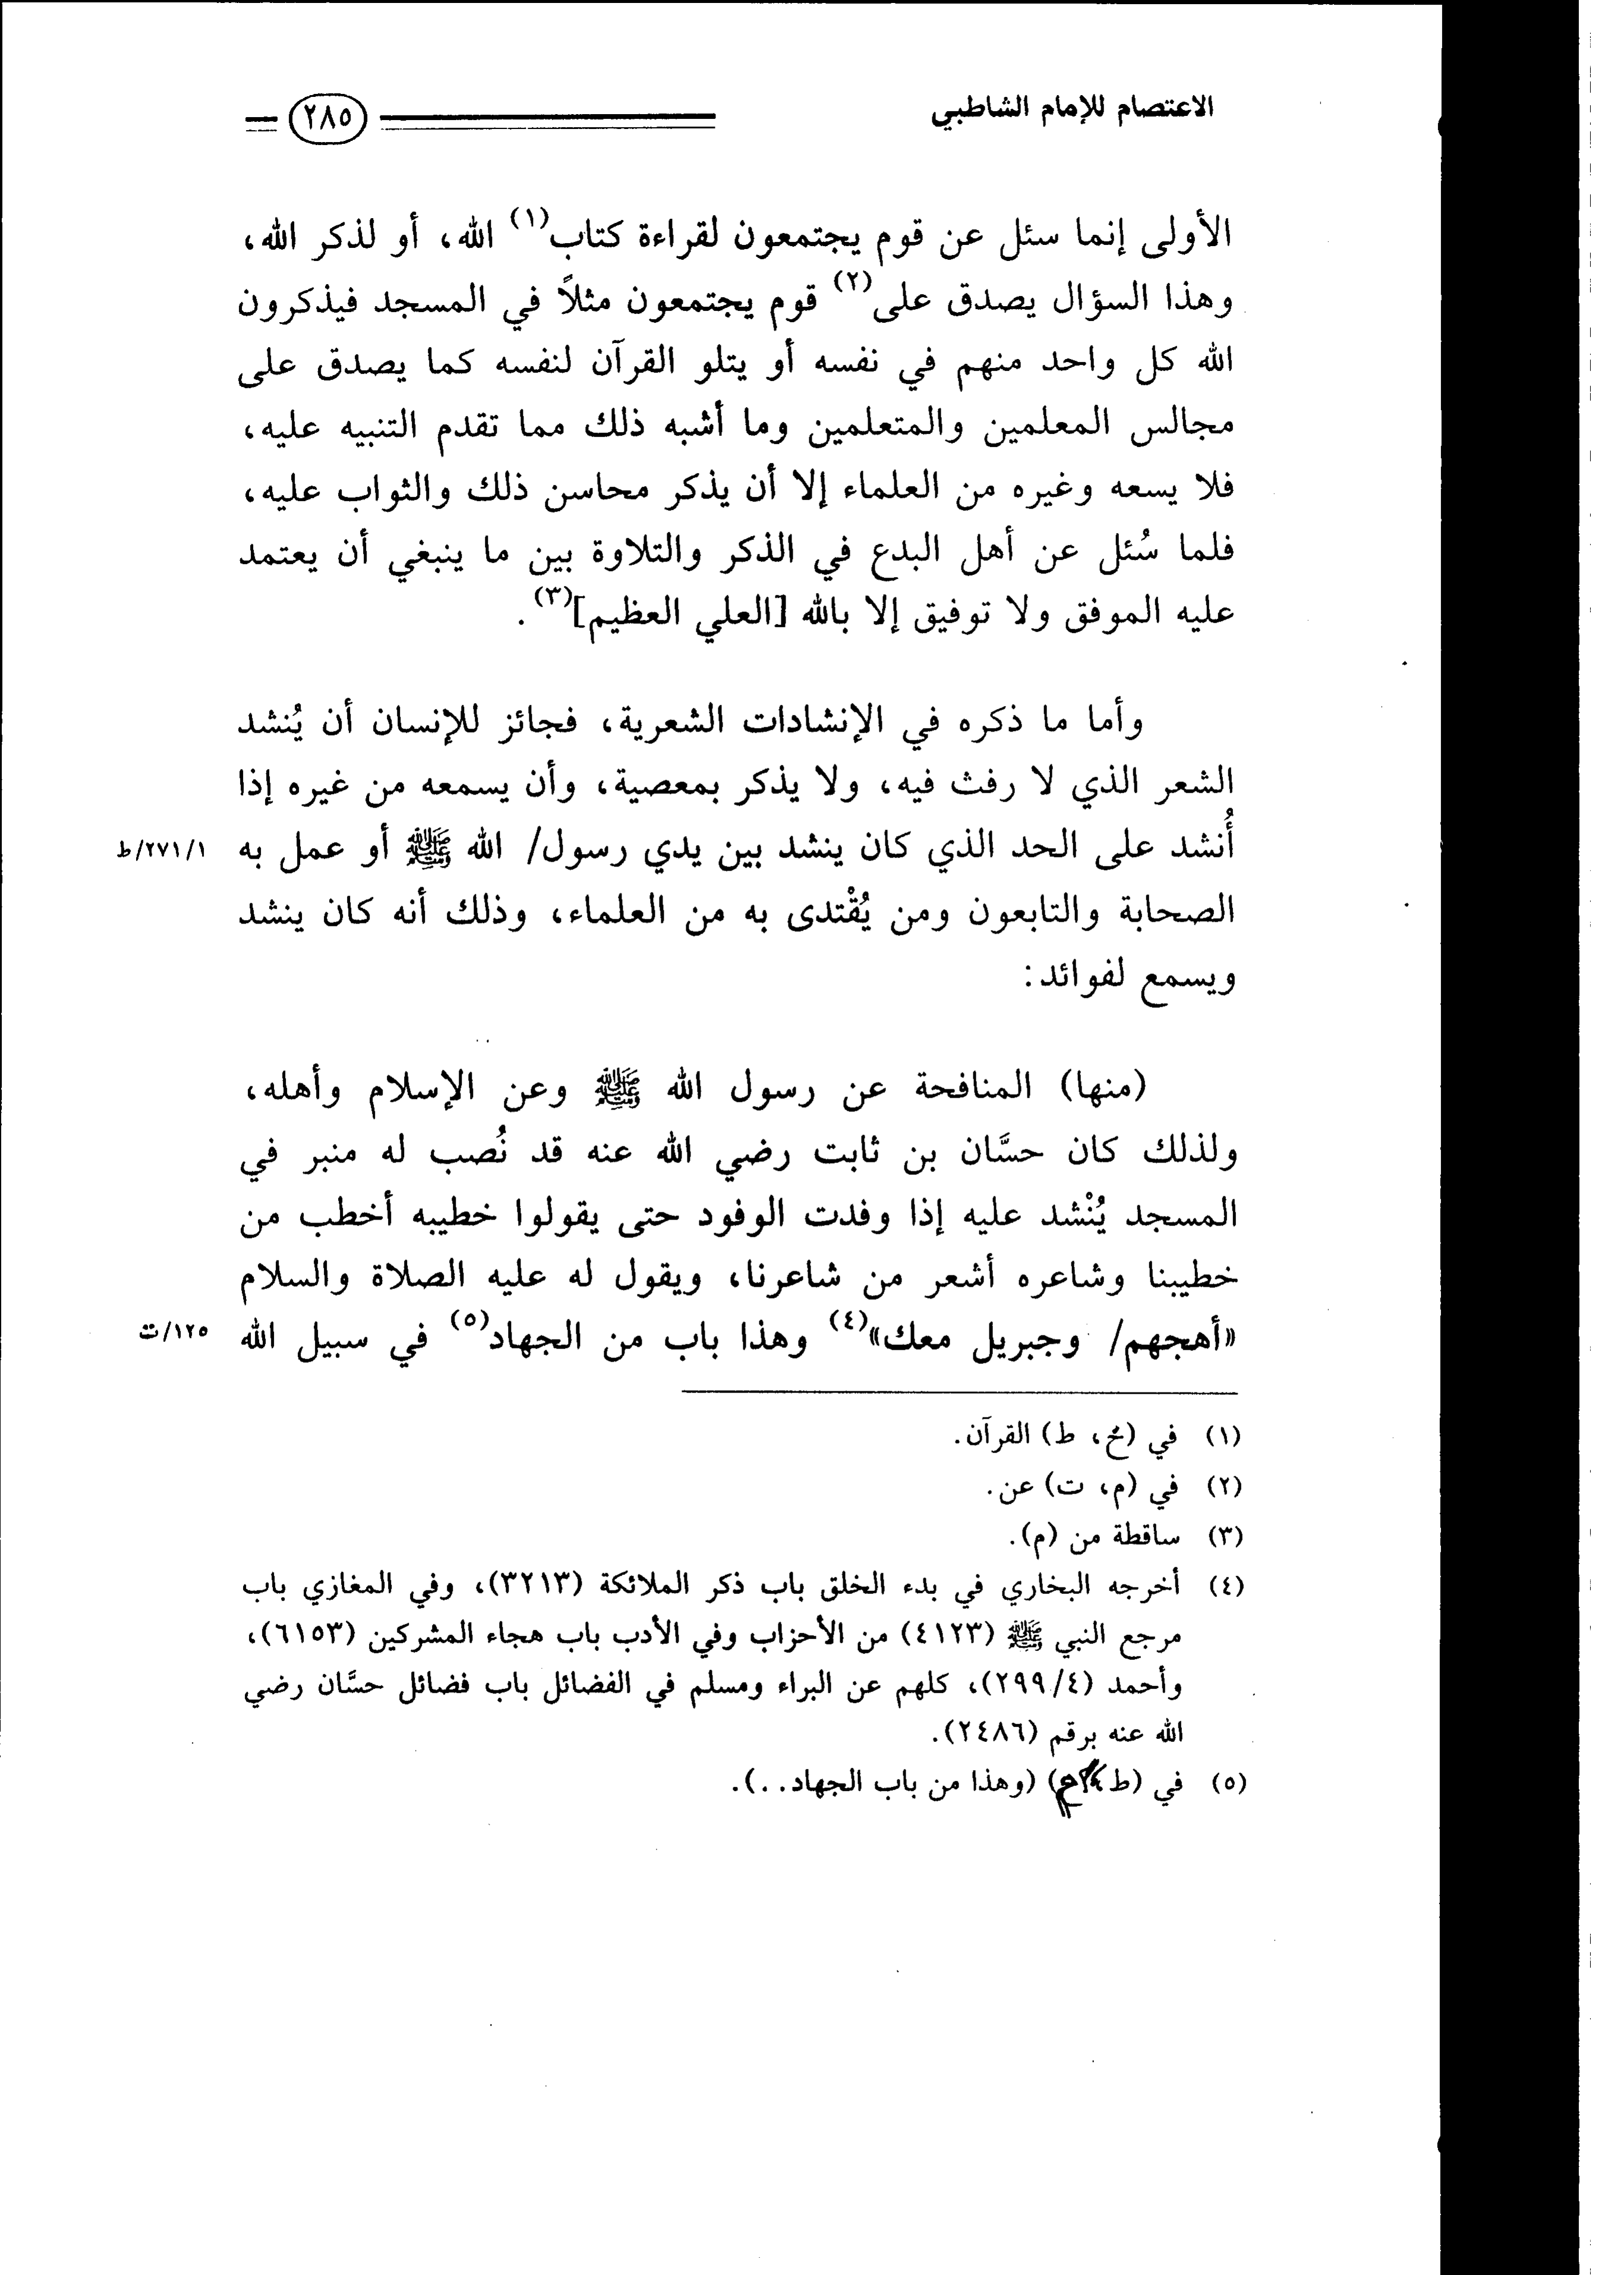 الاعتصام للإمام الشاطبي
٢٨٥
الأولى إنما سئل عن قوم يجتمعون لقراءة كتاب(١) الله، أو لذكر الله،
وهذا السؤال يصدق على(٢) قوم يجتمعون مثلاً في المسجد فيذكرون
الله كل واحد منهم في نفسه أو يتلو القرآن لنفسه كما يصدق على
مجالس المعلمين والمتعلمين وما أشبه ذلك مما تقدم التنبيه عليه،
فلا يسعه وغيره من العلماء إلا أن يذكر محاسن ذلك والثواب عليه،
فلما سُئل عن أهل البدع في الذكر والتلاوة بين ما ينبغي أن يعتمد
عليه الموفق ولا توفيق إلا بالله [العلي العظيم](٣).
وأما ما ذكره في الإنشادات الشعرية، فجائز للإنسان أن يُنشد
الشعر الذي لا رفث فيه، ولا يذكر بمعصية، وأن يسمعه من غيره إذا
أُنشد على الحد الذي كان ينشد بين يدي رسول/ الله ﷺ أو عمل به
٢٧١/١/ط
الصحابة والتابعون ومن يُقْتدى به من العلماء، وذلك أنه كان ينشد
ويسمع لفوائد:
(منها) المنافحة عن رسول الله ﷺ وعن الإسلام وأهله،
ولذلك كان حسَّان بن ثابت رضي الله عنه قد نُصب له منبر في
المسجد يُنْشد عليه إذا وفدت الوفود حتى يقولوا خطيبه أخطب من
خطيبنا وشاعره أشعر من شاعرنا، ويقول له عليه الصلاة والسلام
«أهجهم/ وجبريل معك»(٤) وهذا باب من الجهاد(٥) في سبيل الله
١٢٥/ت
(١) في (خ، ط) القرآن.
(٢) في (م، ت) عن.
(٣) ساقطة من (م).
(٤) أخرجه البخاري في بدء الخلق باب ذكر الملائكة (٣٢١٣)، وفي المغازي باب
مرجع النبي ﷺ (٤١٢٣) من الأحزاب وفي الأدب باب هجاء المشركين (٦١٥٣)،
وأحمد (٢٩٩/٤)، كلهم عن البراء ومسلم في الفضائل باب فضائل حسَّان رضي
الله عنه برقم (٢٤٨٦).
(٥) في (ط) (وهذا من باب الجهاد..).